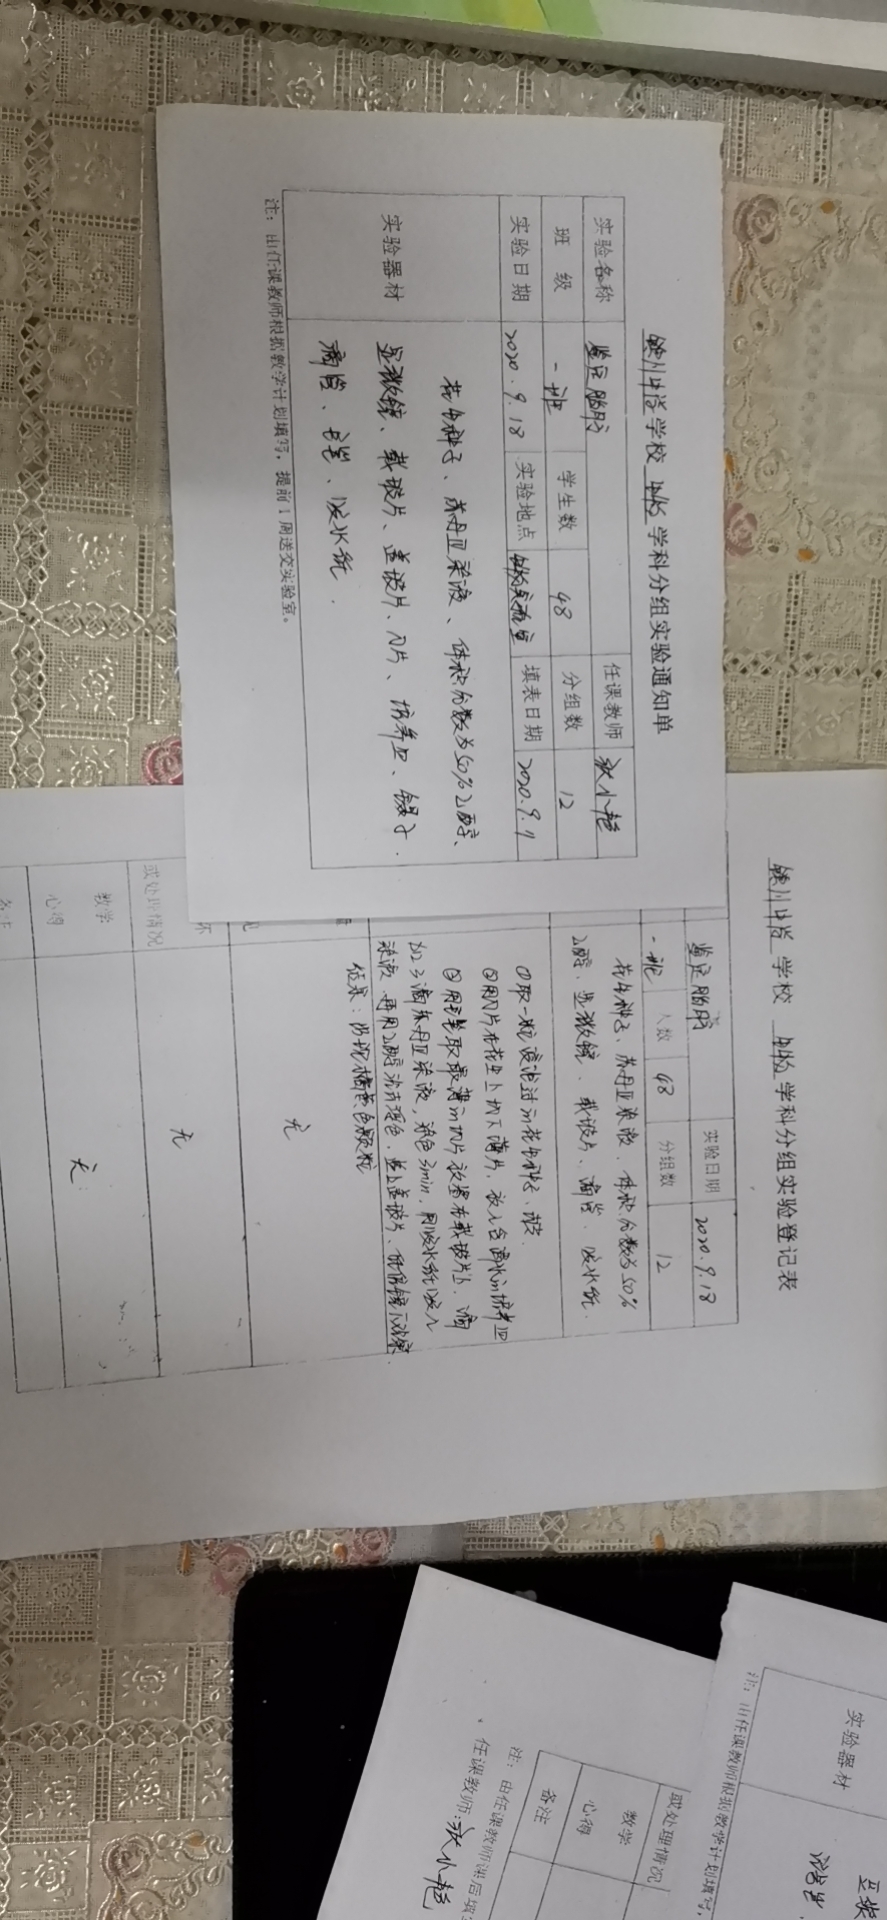 学校 生物 学科分组实验通知单
实验名称 鉴定脂肪 任课教师
班 级 一班 学生数 48 分组数 12
实验日期 2020.9.18 实验地点 生物实验室 填表日期 2020.9.11
实验器材
花生种子、苏丹Ⅲ染液、体积分数为50%乙醇、
显微镜、载玻片、盖玻片、刀片、培养皿、镊子、
滴管、毛笔、吸水纸.
注：由任课教师根据教学计划填写，提前1周送交实验室。
学校 生物 学科分组实验登记表
鉴定脂肪 实验日期 2020.9.18
一班 人数 48 分组数 12
花生种子、苏丹Ⅲ染液、体积分数为50%
乙醇、显微镜、载玻片、滴管、吸水纸.
①取一粒浸泡过的花生种子,
②用刀片在花生上切下薄片，放入含清水的培养皿
③用毛笔取最薄的切片放置在载玻片上，滴
加2~3滴苏丹Ⅲ染液，染色3min，用吸水纸吸入
染液，再用乙醇洗去浮色，盖上盖玻片，低倍镜下观察.
结果：出现橘黄色颗粒
无
或处理情况 无
教学
心得
无.
备注
或处理情况
教学
心得
备注
注：由任课教师课后填
任课教师：
实验器材
注：由任课教师根据教学计划填写，